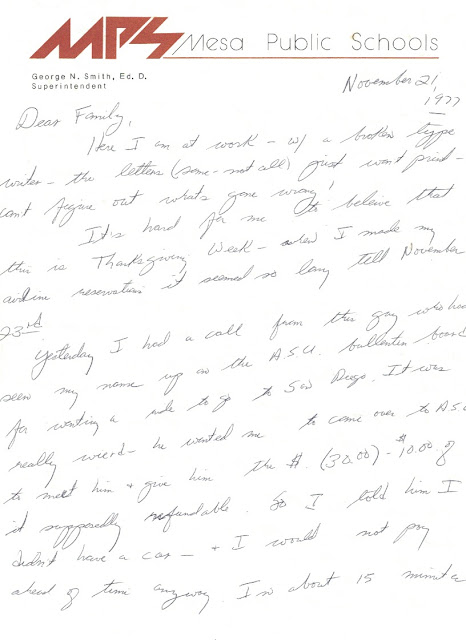 MPS Mesa Public Schools
George N. Smith, Ed. D.
Superintendent
November 21,
1977
Dear Family,
Here I am at work - w/ a broken type
writer - the letters (some - not all) just wont pred -
cant figure out whats gone wrong!
It's hard for me to beleive that
this is Thanksgiving Week - when I made my
airline reservations it seemed so long till November
23rd
Yesterday I had a call from this guy who had
seen my name up on the A.S.U. bullentin board
for wanting a ride to go to San Diego. It was
really wierd - he wanted me to come over to A.S.U
to meet him + give him the $. (30.00) - $10.00 of
it supposedly refundable. So I told him I
didn't have a car - + I would not pay
ahead of time anyway. In about 15 minutes